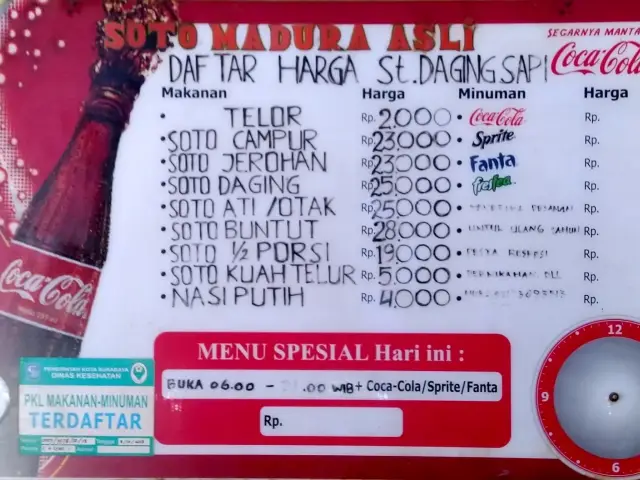 SOTO MADURA ASLI
SEGARNYA MANTA
Coca-Cola
DAFTAR HARGA St. DAGING SAPI
Makanan Harga Minuman Harga
• TELOR Rp. 2.000 • Coca-Cola Rp.
• SOTO CAMPUR Rp. 23.000 • Sprite Rp.
• SOTO JEROHAN Rp. 23.000 • Fanta Rp.
• SOTO DAGING Rp. 25.000 • frestea Rp.
• SOTO ATI / OTAK Rp. 25.000 • PESANAN Rp.
• SOTO BUNTUT Rp. 28.000 • UNTUK ULANG TAHUN Rp.
• SOTO 1/2 PORSI Rp. 19.000 • PESTA RESEPSI Rp.
• SOTO KUAH TELUR Rp. 5.000 • PERNIKAHAN DLL Rp.
• NASI PUTIH Rp. 4.000 • Rp.
Coca-Cola
MENU SPESIAL Hari ini :
BUKA 06.00 - .00 WIB + Coca-Cola/Sprite/Fanta
Rp.
PEMERINTAH KOTA SURABAYA
DINAS KESEHATAN
PKL MAKANAN-MINUMAN
TERDAFTAR
12
9
6